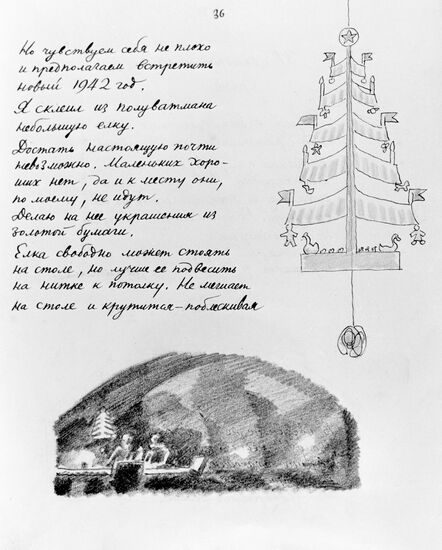 36
Но чувствуем себя не плохо
и предполагаем встретить
новый 1942 год.
Я склеил из полуватмана
небольшую елку.
Достать настоящую почти
невозможно. Маленьких хоро-
ших нет, да и к месту они,
по моему, не идут.
Делаю на нее украшения из
золотой бумаги.
Елка свободно может стоять
на столе, но лучше ее подвесить
на нитке к потолку. Не мешает
на столе и крутится-поблескивая